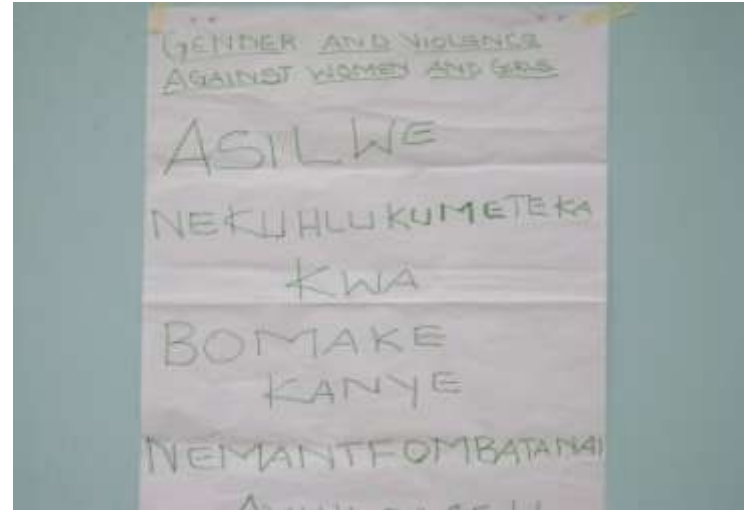 GENDER AND VIOLENCE
AGAINST WOMEN AND GIRLS
ASILWE
NEKUHLUKUMETEKA
KWA
BOMAKE
KANYE
NEMANTFOMBATANAI